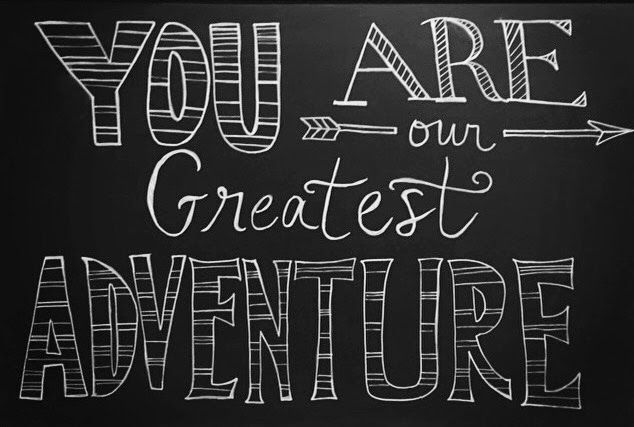 YOU ARE
our
Greatest
ADVENTURE